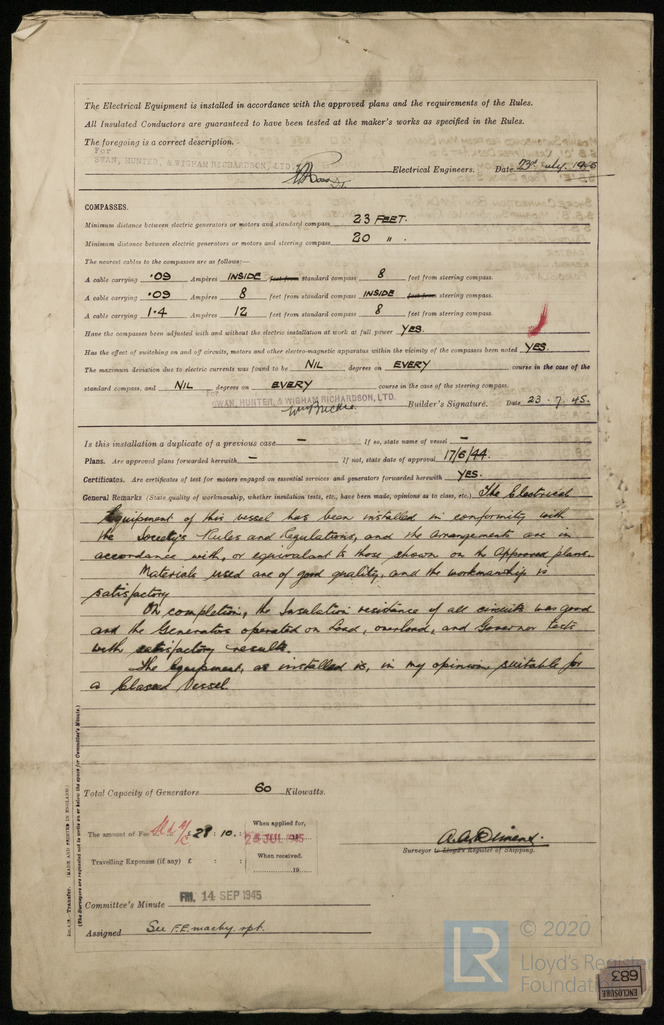 The Electrical Equipment is installed in accordance with the approved plans and the requirements of the Rules.
All Insulated Conductors are guaranteed to have been tested at the maker's works as specified in the Rules.
The foregoing is a correct description.
For
SWAN, HUNTER, & WIGHAM RICHARDSON, LTD.
Electrical Engineers. Date 23rd July, 1945
COMPASSES.
Minimum distance between electric generators or motors and standard compass 23 FEET.
Minimum distance between electric generators or motors and steering compass 20 " .
The nearest cables to the compasses are as follows:—
A cable carrying .09 Ampères INSIDE feet from standard compass 8 feet from steering compass.
A cable carrying .09 Ampères 8 feet from standard compass INSIDE feet from steering compass.
A cable carrying 1.4 Ampères 12 feet from standard compass 8 feet from steering compass.
Have the compasses been adjusted with and without the electric installation at work at full power YES.
Has the effect of switching on and off circuits, motors and other electro-magnetic apparatus within the vicinity of the compasses been noted YES.
The maximum deviation due to electric currents was found to be NIL degrees on EVERY course in the case of the
standard compass, and NIL degrees on EVERY course in the case of the steering compass.
For
SWAN, HUNTER & WIGHAM RICHARDSON, LTD.
Builder's Signature. Date 23.7.45.
Is this installation a duplicate of a previous case — If so, state name of vessel —
Plans. Are approved plans forwarded herewith — If not, state date of approval 17/6/44.
Certificates. Are certificates of test for motors engaged on essential services and generators forwarded herewith YES.
General Remarks (State quality of workmanship, whether insulation tests, etc., have been made, opinions as to class, etc.) The Electrical
Equipment of this vessel has been installed in conformity with
the Society's Rules and Regulations, and the arrangements are in
accordance with, or equivalant to those shown on the Approved plans.
Materials used are of good quality, and the workmanship is
satisfactory
On completion, the Insulation resistance of all circuits was good
and the Generators operated on Load, overload, and Governor tests
with satisfactory results.
The Equipment, as installed is, in my opinion, suitable for
a Classed Vessel.
Total Capacity of Generators 60 Kilowatts.
The amount of Fee £ 28 : 10 :
When applied for,
25 JUL 1945
Travelling Expenses (if any) £ : :
When received.
19
Surveyor to Lloyd's Register of Shipping.
Committee's Minute FRI. 14 SEP 1945
Assigned See F.E. machy. rpt.
Transfer. (MADE AND PRINTED IN ENGLAND.)
(The Surveyors are requested not to write on or below the space for Committee's Minute.)
LR © 2020
Lloyd's Register
Foundation
683
ENCLOSURE